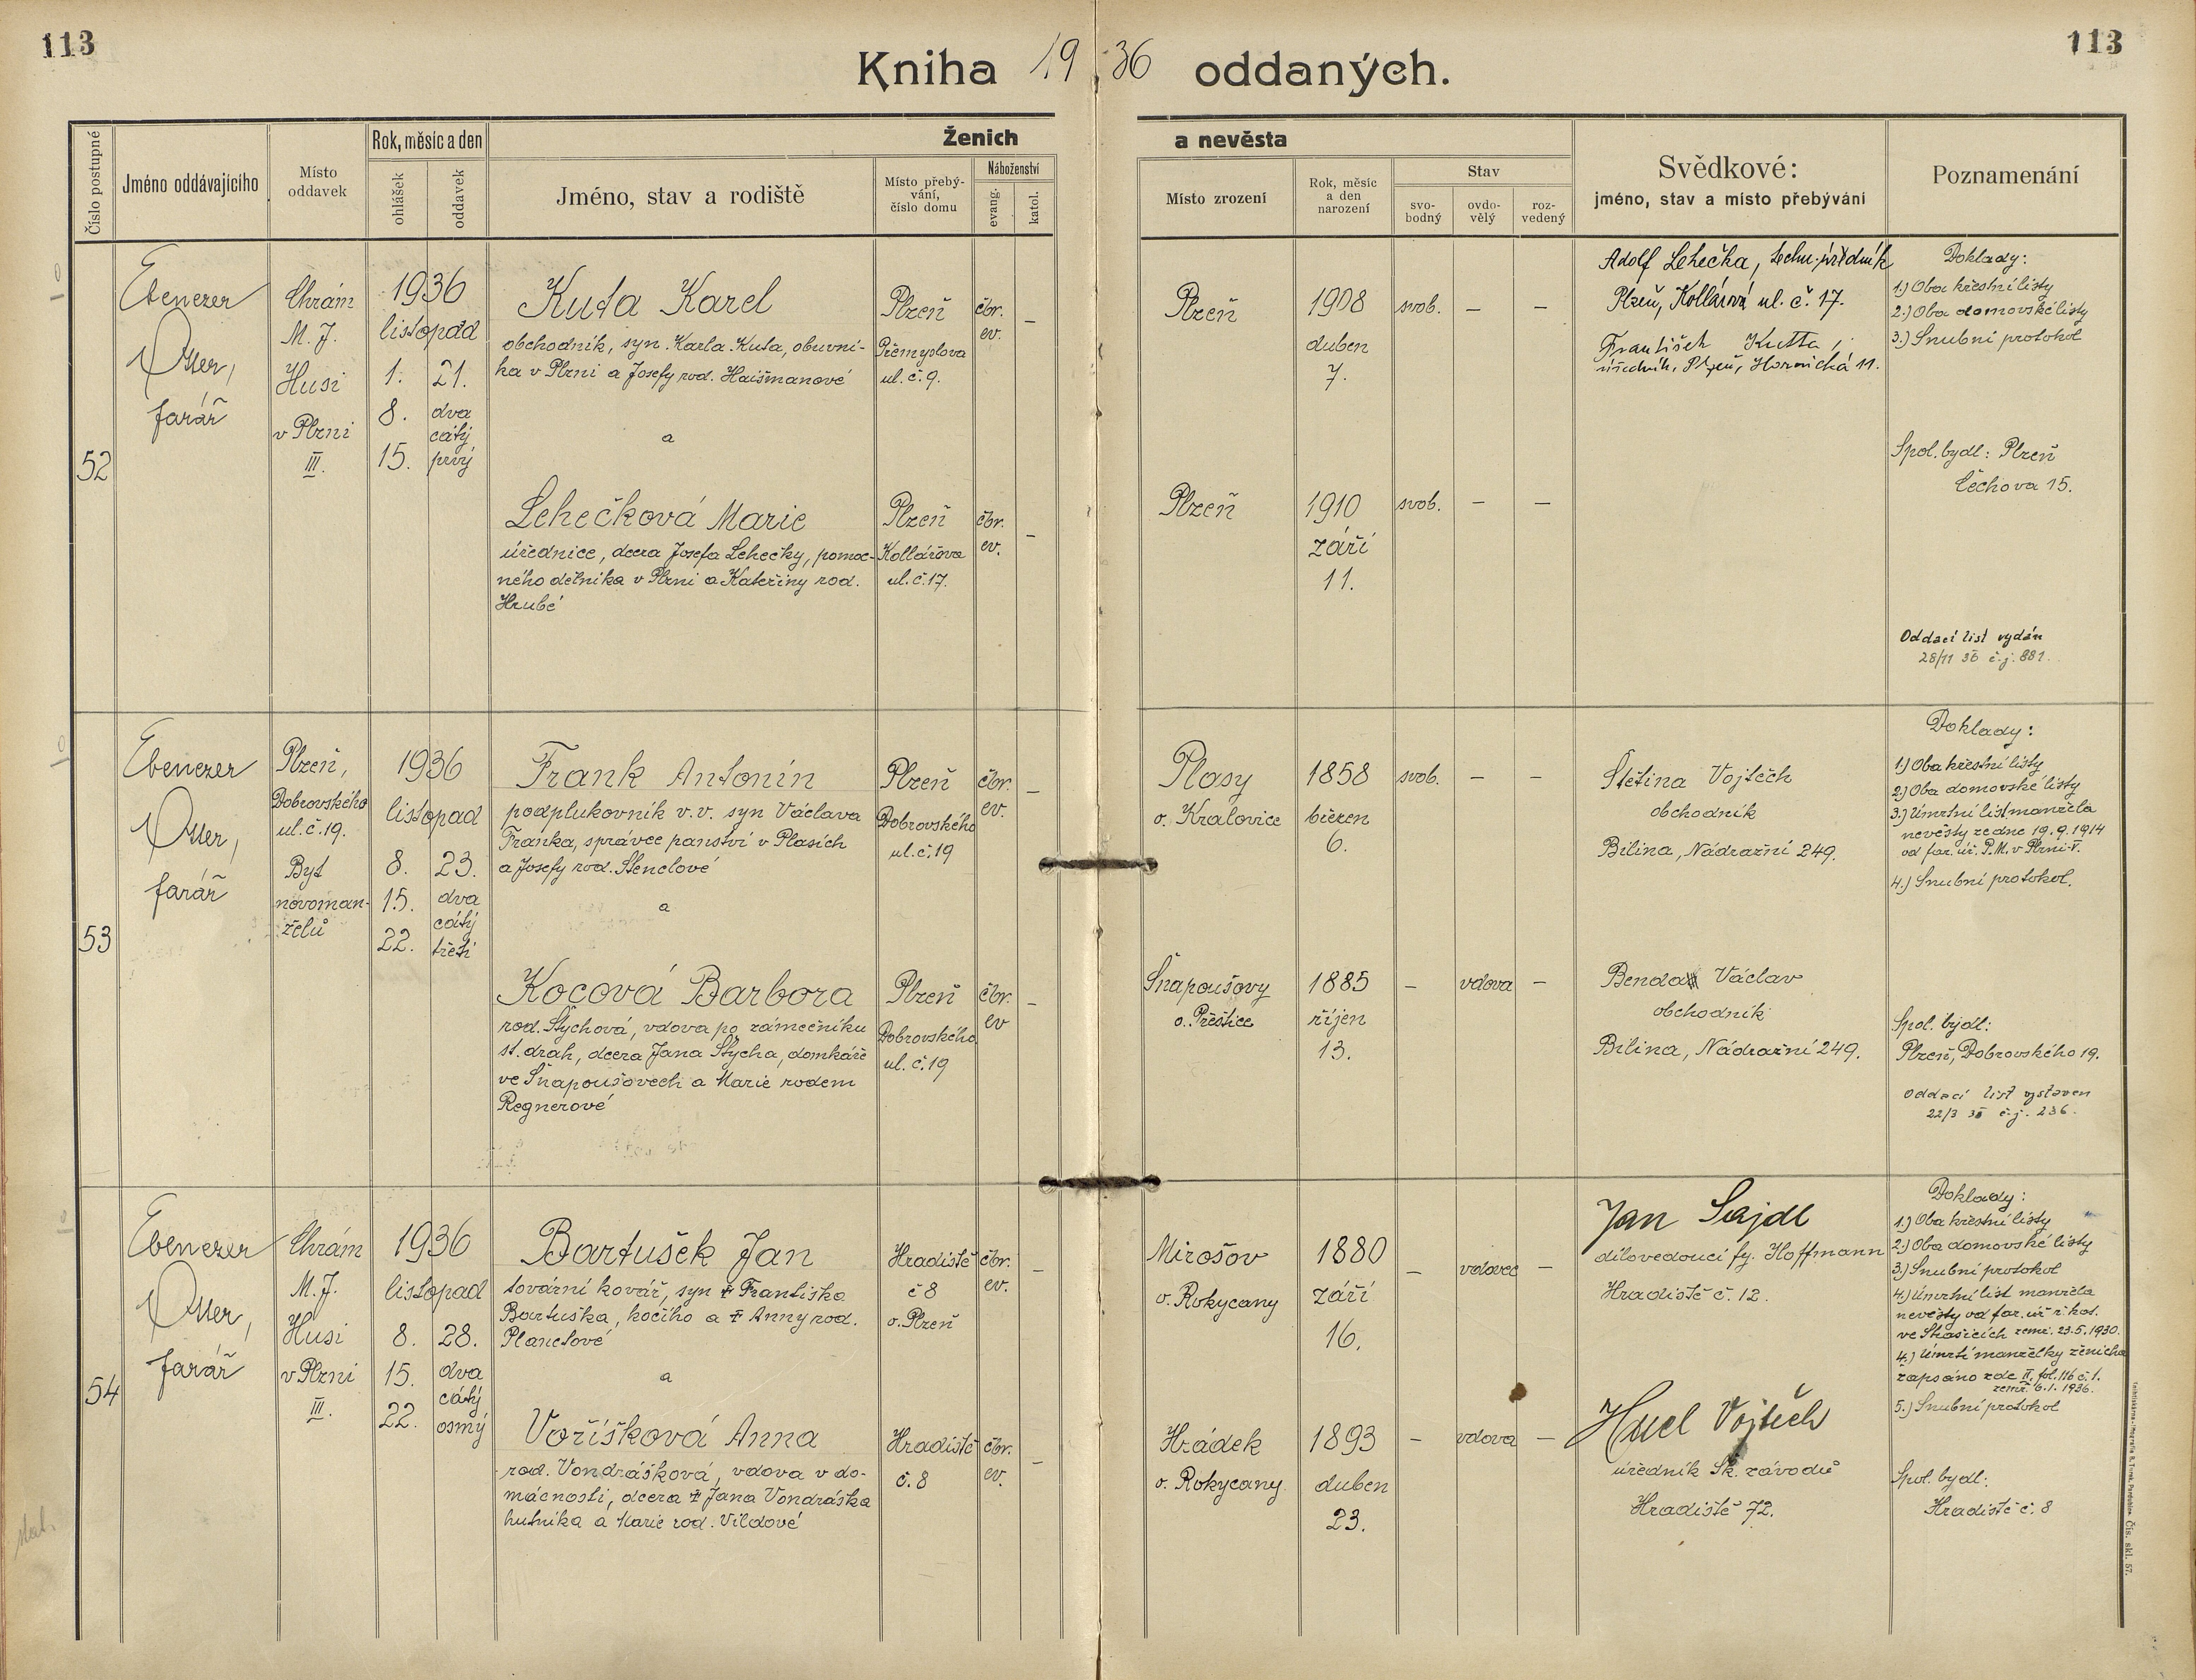 113
113
Kniha 1936 oddaných.
Číslo postupné
Jméno oddávajícího
Místo
oddavek
Rok, měsíc a den
ohlášek
oddavek
Ženich
Jméno, stav a rodiště
Místo přebý-
vání,
číslo domu
Náboženství
evang.
katol.
a nevěsta
Místo zrození
Rok, měsíc
a den
narození
Stav
svo-
bodný
ovdo-
vělý
roz-
vedený
Svědkové:
jméno, stav a místo přebývání
Poznamenání
52
Ebenezer
Otter,
farář
Chrám
M. J.
Husi
v Plzni
III.
1936
listopad
1.
8.
15.
21.
dva
cátý
prvý
Kuta Karel
obchodník, syn Karla Kuta, obuvní-
ka v Plzni a Josefy rod. Haišmanové
a
Lehečková Marie
úřednice, dcera Josefa Lehečky, pomoc-
ného dělníka v Plzni a Kateřiny rod.
Hrubé
Plzeň
Přemyslova
ul. č. 9.
čbr.
ev.
–
Plzeň
Kollárova
ul. č. 17.
čbr.
ev.
–
Plzeň
1908
duben
7.
svob.
–
–
Plzeň
1910
září
11.
svob.
–
–
Adolf Lehečka, techn. úředník
Plzeň, Kollárova ul. č. 17.
František Kutta,
úředník, Plzeň, Hornická 11.
Doklady:
1.) Oba křestní listy
2.) Oba domovské listy
3.) Snubní protokol
Spol. bydl: Plzeň
Čechova 15.
Oddací list vydán
28/11 36 č.j. 881.
53
Ebenezer
Otter,
farář
Plzeň,
Dobrovského
ul. č. 19.
Byt
novoman-
želů
1936
listopad
8.
15.
22.
23.
dva
cátý
třetí
Frank Antonín
podplukovník v.v. syn Václava
Franka, správce panství v Plasích
a Josefy rod. Stenclové
a
Kocová Barbora
rod. Štychová, vdova po zámečníku
st. drah, dcera Jana Štycha, domkáře
ve Šnapoušovech a Marie rodem
Regnerové
Plzeň
Dobrovského
ul. č. 19
čbr.
ev.
–
Plzeň
Dobrovského
ul. č. 19
čbr.
ev
–
Plasy
o. Kralovice
1858
březen
6.
svob.
–
–
Šnapoušovy
o. Přeštice
1885
říjen
13.
–
vdova
–
Štětina Vojtěch
obchodník
Bílina, Nádražní 249.
Benda Václav
obchodník
Bílina, Nádražní 249.
Doklady:
1.) Oba křestní listy
2.) Oba domovské listy
3.) Úmrtní list manžela
nevěsty ze dne 19.9.1914
od far. úř. P.M. v Plzni-V.
4.) Snubní protokol.
Spol. bydl:
Plzeň, Dobrovského 19.
Oddací list vystaven
22/3 38 č.j. 236.
54
Ebenezer
Otter,
farář
Chrám
M. J.
Husi
v Plzni
III.
1936
listopad
8.
15.
22.
28.
dva
cátý
osmý
Bartušek Jan
tovární kovář, syn † Františka
Bartuška, kočího a † Anny rod.
Planetové
a
Voříšková Anna
rod. Vondrášková, vdova v do-
mácnosti, dcera † Jana Vondráška
hutníka a Marie rod. Vildové
Hradiště
č 8
o. Plzeň
čbr.
ev.
–
Hradiště
č. 8
čbr.
ev.
–
Mirošov
o. Rokycany
1880
září
16.
–
vdovec
–
Hrádek
o. Rokycany
1893
duben
23.
–
vdova
–
Jan Sajdl
dílovedoucí fy. Hoffmann
Hradiště č. 12.
Hucl Vojtěch
úředník Šk. závodů
Hradiště 72.
Doklady:
1.) Oba křestní listy
2.) Oba domovské listy
3.) Snubní protokol
4.) Úmrtní list manžela
nevěsty od far. úř. ř. kat.
ve Stašicích zemř. 23.5.1930.
4.) Úmrtí manželky ženicha
zapsáno zde II. fol. 116 č. 1.
zemř. 6.1.1936.
5.) Snubní protokol
Spol. bydl:
Hradiště č. 8
Čís. skl. 57.